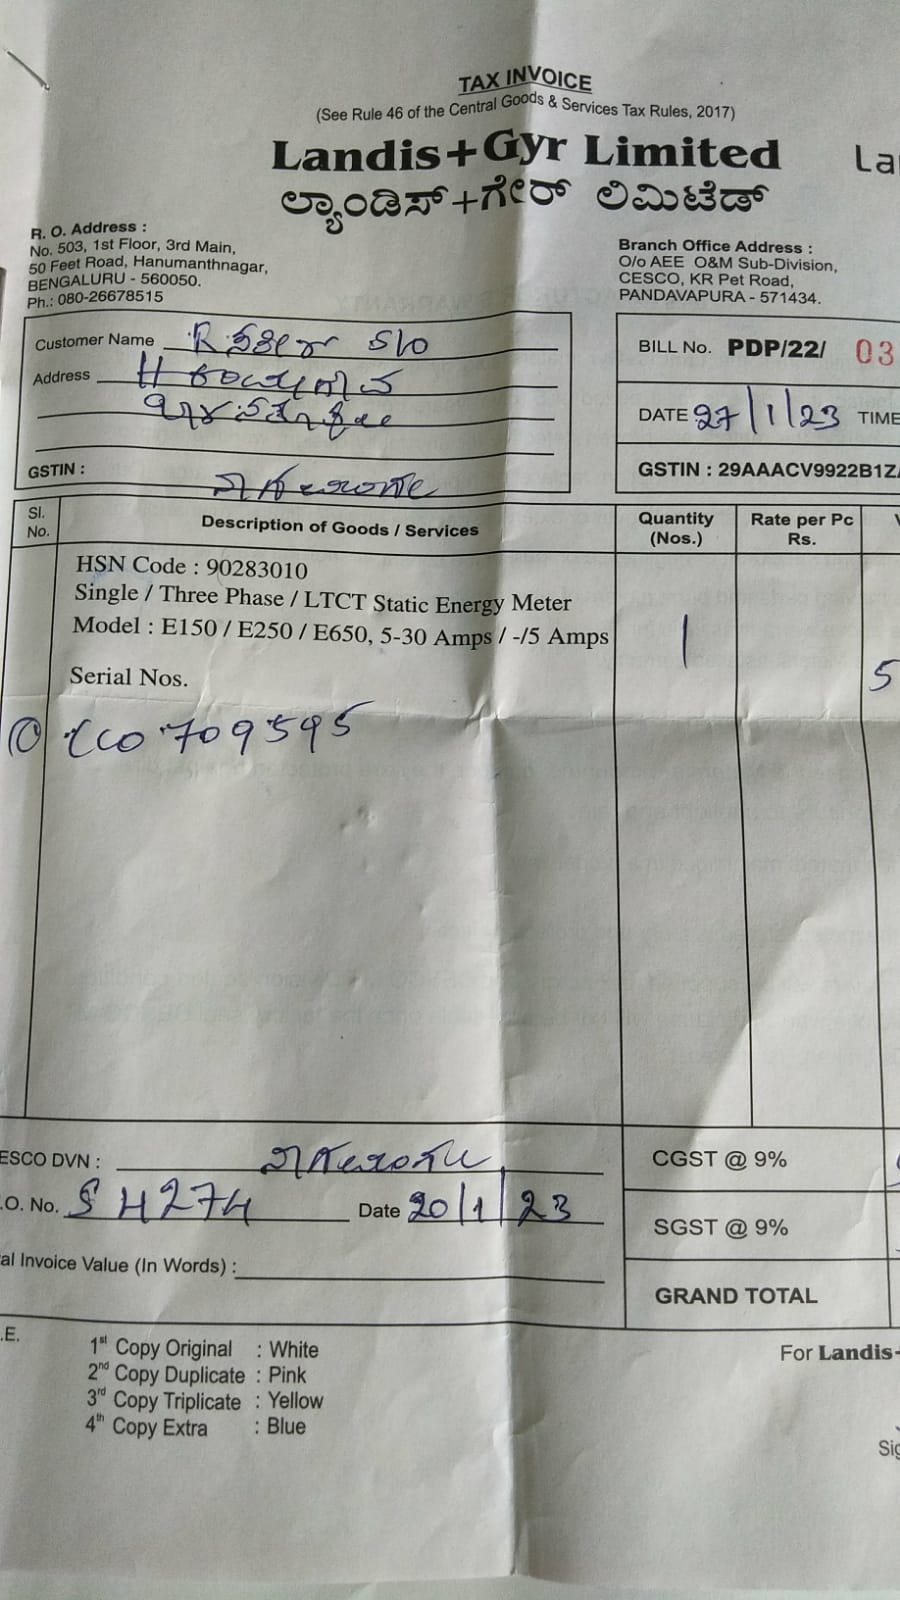 TAX INVOICE
(See Rule 46 of the Central Goods & Services Tax Rules, 2017)
Landis+Gyr Limited
La
ಲ್ಯಾಂಡಿಸ್+ಗೇರ್ ಲಿಮಿಟೆಡ್
R. O. Address :
No. 503, 1st Floor, 3rd Main,
50 Feet Road, Hanumanthnagar,
BENGALURU - 560050.
Ph.: 080-26678515
Branch Office Address :
O/o AEE O&M Sub-Division,
CESCO, KR Pet Road,
PANDAVAPURA - 571434.
Customer Name R S/O
Address
GSTIN :
BILL No. PDP/22/ 03
DATE 27/1/23 TIME
GSTIN : 29AAACV9922B1Z
Sl. No. Description of Goods / Services Quantity (Nos.) Rate per Pc Rs.
HSN Code : 90283010
Single / Three Phase / LTCT Static Energy Meter
Model : E150 / E250 / E650, 5-30 Amps / -/5 Amps 1
Serial Nos. 5
709595
ESCO DVN :
.O. No. S 4274 Date 20/1/23
al Invoice Value (In Words) :
CGST @ 9%
SGST @ 9%
GRAND TOTAL
.E.
1st Copy Original : White
2nd Copy Duplicate : Pink
3rd Copy Triplicate : Yellow
4th Copy Extra : Blue
For Landis+
Sig